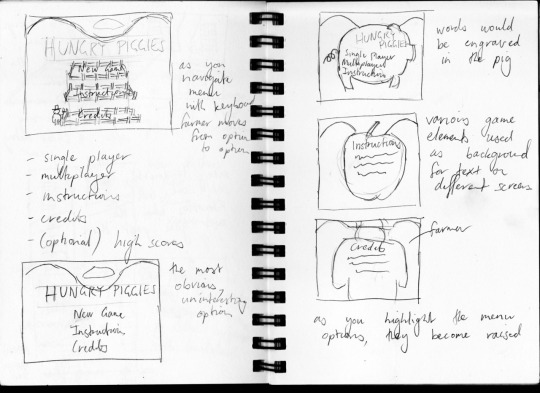 HUNGRY PIGGIES
New Game
Instructions
Credits
as you
navigate
menu
with keyboard
farmer moves
from option
to option
- single player
- multiplayer
- instructions
- credits
- (optional) high scores
HUNGRY PIGGIES
New Game
Instructions
Credits
the most
obvious,
uninteresting
option
HUNGRY
PIGGIES
Single Player
Multiplayer
Instructions
words would
be engraved
in the pig
Instructions
various game
elements used
as background
for text on
different screens
Credits
farmer
as you highlight the menu
options, they become raised